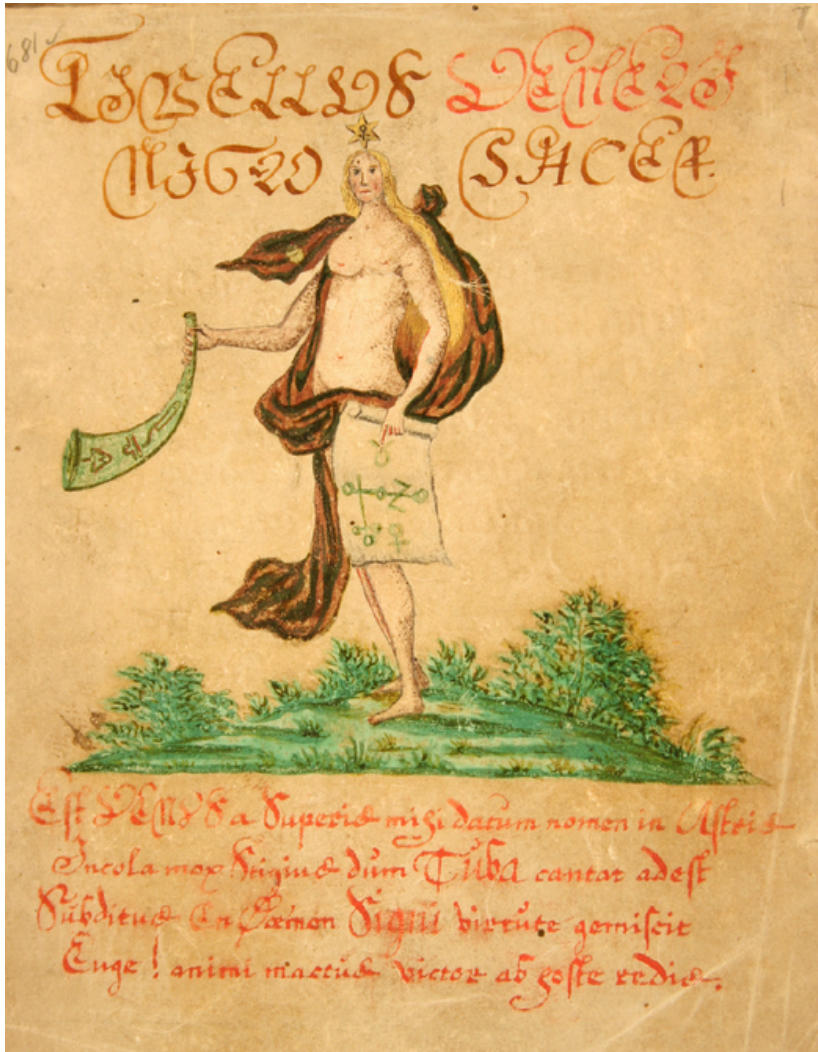 681
7
LIBELLUS VENERI
NIGRO SACER.
Est VENUS a Superis mihi datum nomen in Astris
Incola mox Stigius dum TUBA cantat adest
Subditus En Dæmon Signi virtute gemiscit
Euge! animi mactus victor ab hoste redis.